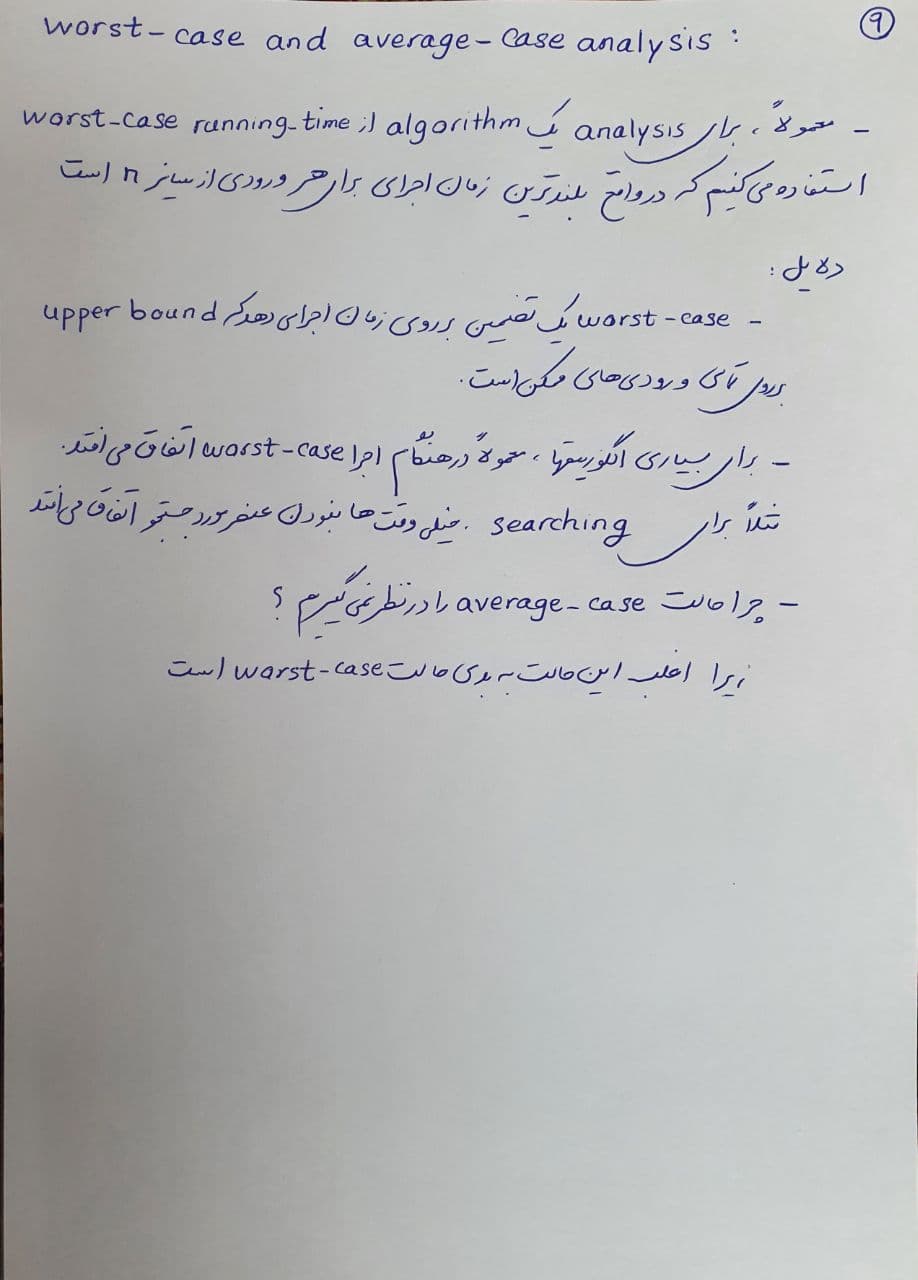 ۹
worst-case and average-case analysis :
- معمولاً ، برای analysis یک algorithm از worst-case running-time
استفاده می‌کنیم که در واقع بلندترین زمان اجرای برای هر ورودی از سایز n است
دلایل :
- worst-case یک تضمین بر روی زمان اجرای دهد که upper bound
بر روی تمامی ورودی‌های ممکن است.
- برای بسیاری الگوریتمها ، معمولاً در هنگام اجرا worst-case اتفاق می‌افتد.
مثلاً برای searching . خیلی وقت‌ها نبودن عنصر مورد جستجو اتفاق می‌افتد
- چرا حالت average-case را در نظر نمی‌گیریم ؟
زیرا اغلب این حالت به بدی حالت worst-case است